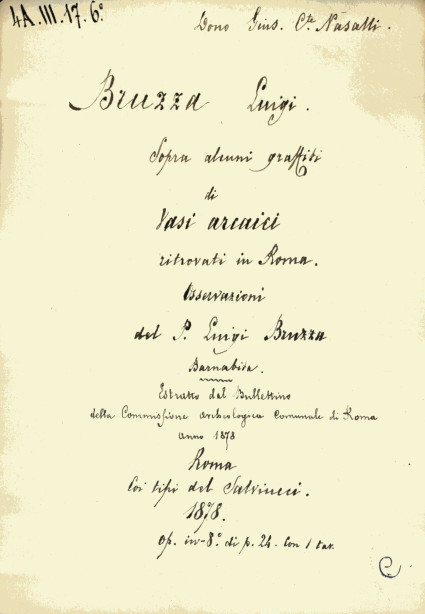 4A.III.17.6°
Dono Gius. Cte Nasalli.
Bruzza Luigi.
Sopra alcuni graffiti
di
Vasi arcaici
ritrovati in Roma.
Osservazioni
del P. Luigi Bruzza
Barnabita.
Estratto dal Bullettino
della Commissione Archeologica Comunale di Roma
anno 1878
Roma
Coi tipi del Salviucci.
1878.
Op. in-8° di p. 24. Con 1 tav.
C